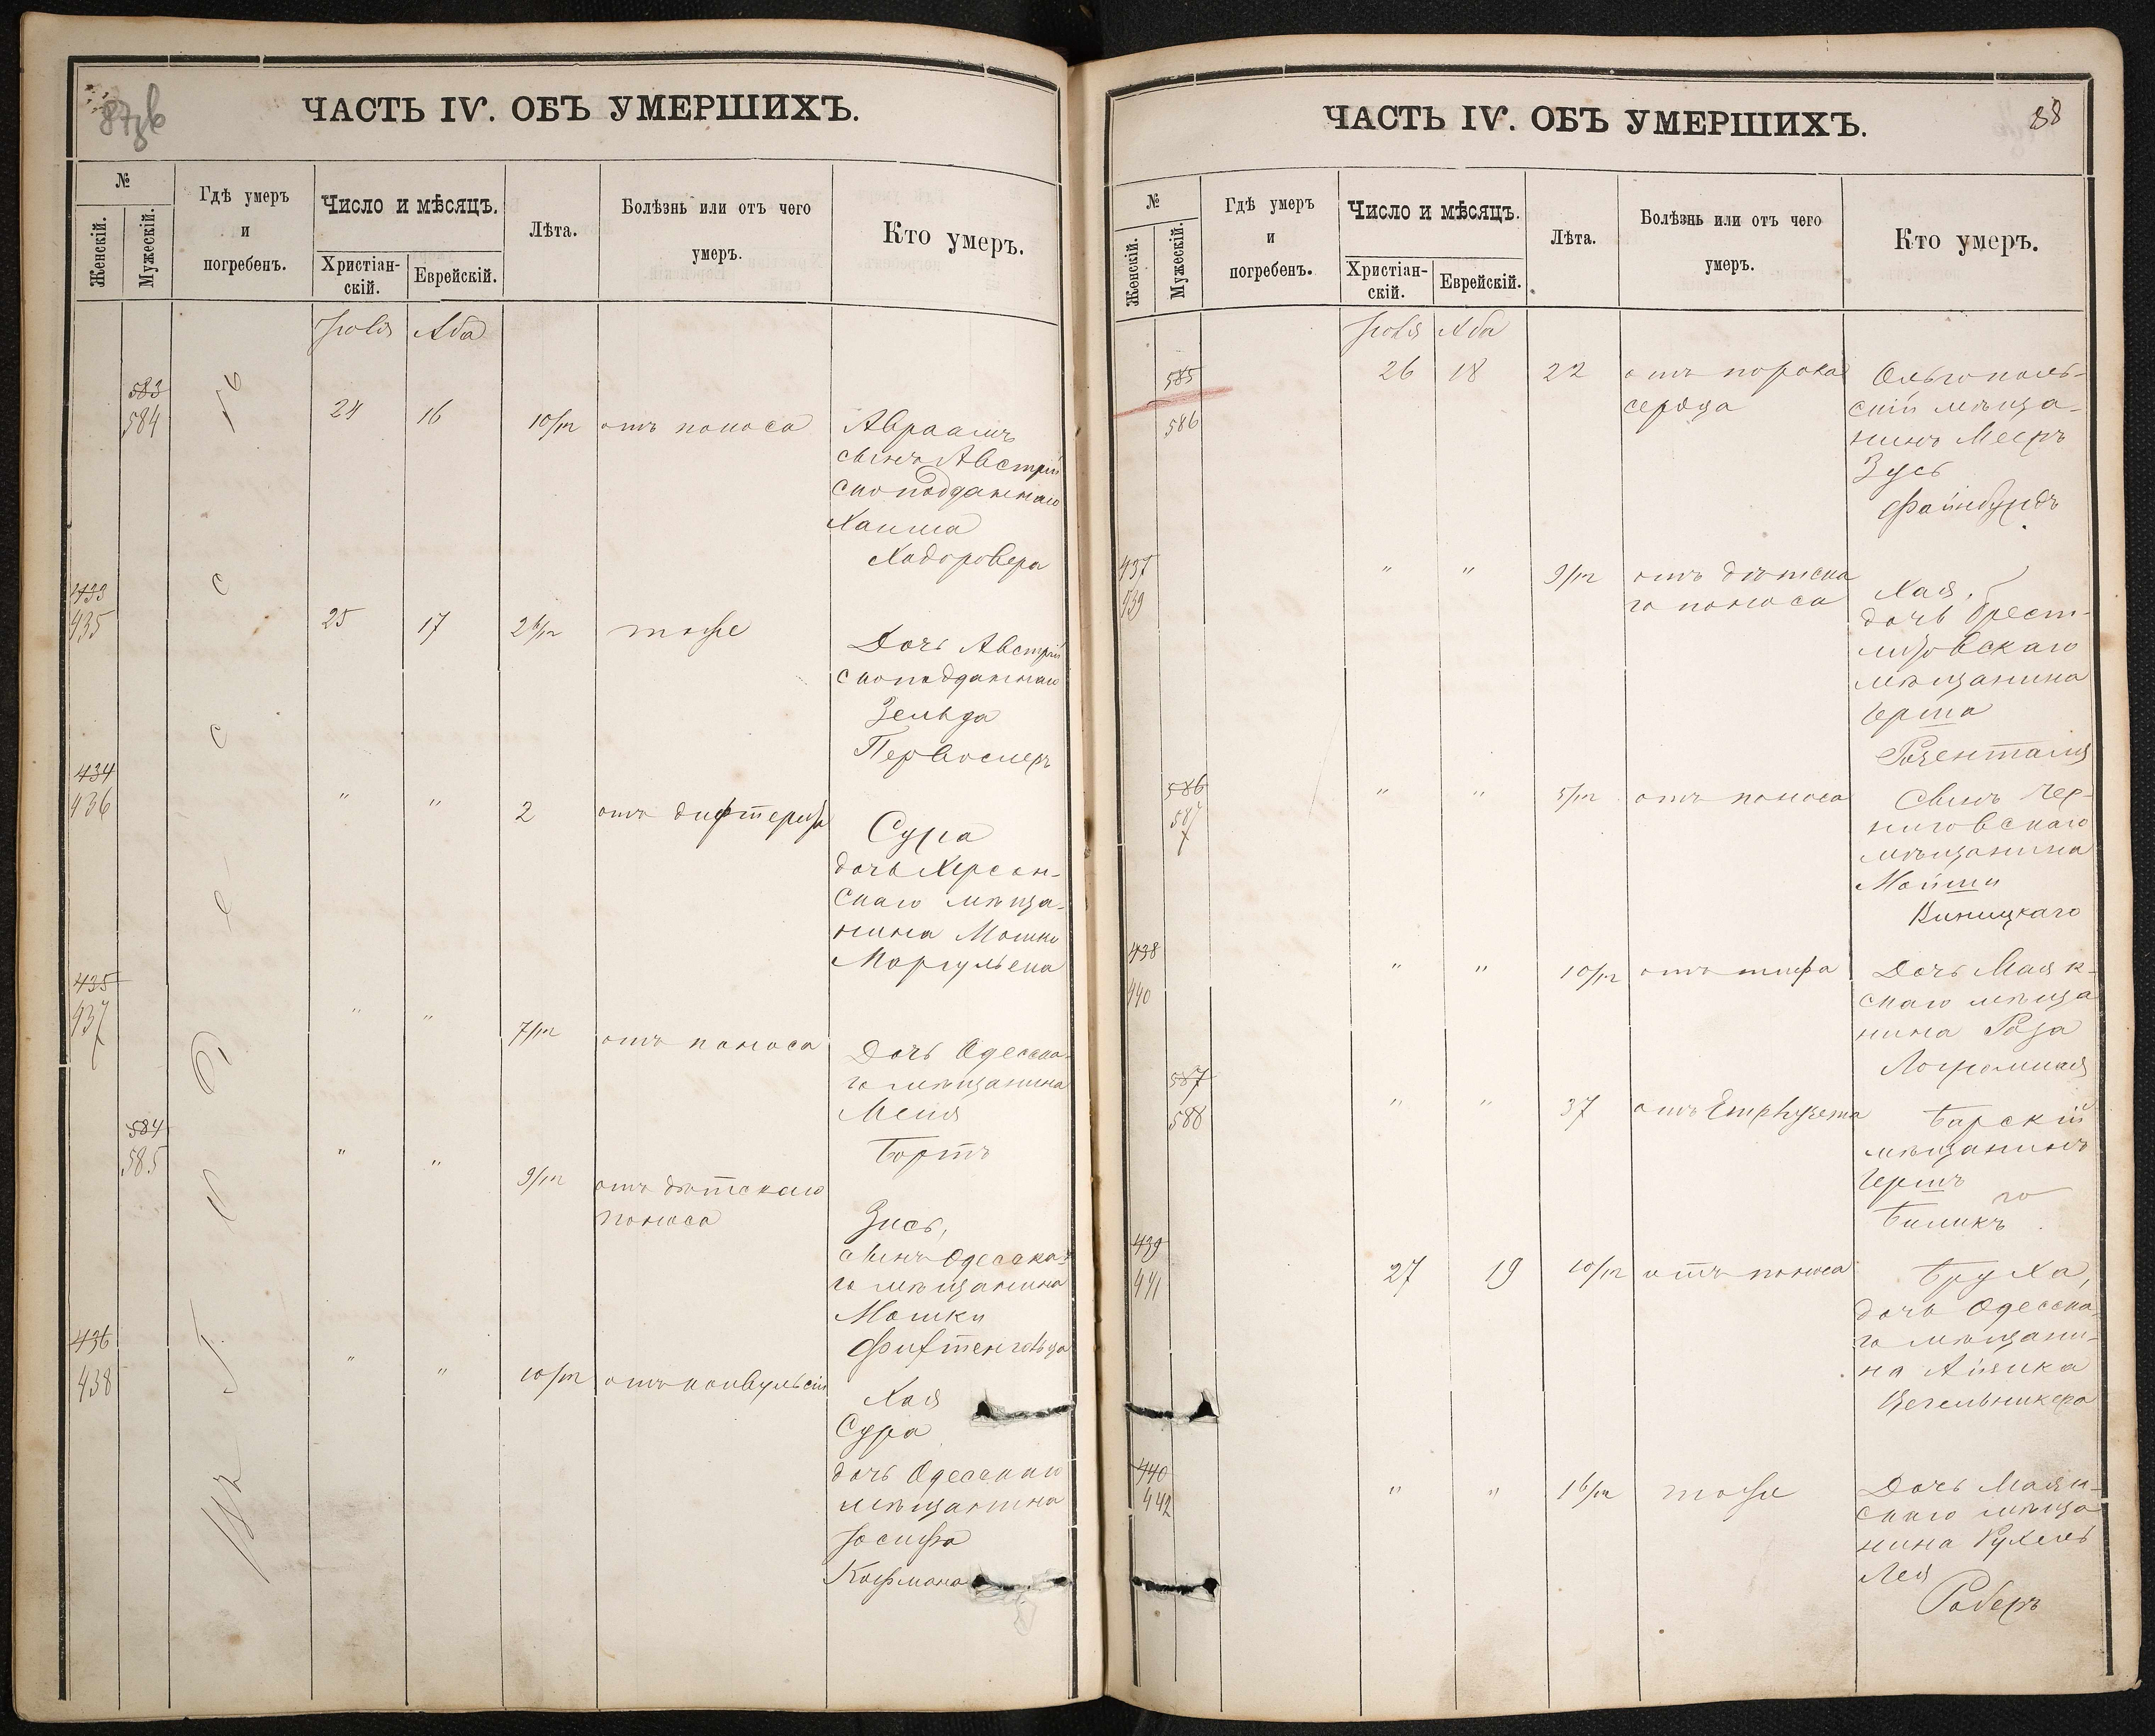 ЧАСТЬ IV. ОБЪ УМЕРШИХЪ.
№
Женскій.
Мужескій.
Гдѣ умеръ
и
погребенъ.
Число и мѣсяцъ.
Христіан-
скій.
Еврейскій.
Лѣта.
Болѣзнь или отъ чего
умеръ.
Кто умеръ.
Іюля Аба
583
584 24 16 10/12 отъ поноса Авраамъ
сынъ Австрій
скоподданнаго
Хаима
Ходоровера
433
435 25 17 2 6/12 тоже
Дочь Австрій
скоподданнаго
Зельда
434
436 " " 2 отъ дифтерита
Сура
дочь Херсон-
скаго мѣща-
нина Мошки
435
437 " " 7/12 отъ поноса
Дочь Одесска-
го мѣщанина
Меня
Бортъ
584
585 " " 9/12 отъ дѣтскаго
поноса
Зись,
сынъ Одесска-
го мѣщанина
Мошки
436
438 " " 10/12 отъ конвульсіи
Хая
Сура
дочь Одесскаго
мѣщанина
Іосифа
Кофмана
ЧАСТЬ IV. ОБЪ УМЕРШИХЪ.
88
№
Женскій.
Мужескій.
Гдѣ умеръ
и
погребенъ.
Число и мѣсяцъ.
Христіан-
скій.
Еврейскій.
Лѣта.
Болѣзнь или отъ чего
умеръ.
Кто умеръ.
Іюля Аба
585 26 18 22 отъ порока Ольгополь-
586 сердца скій мѣща-
нинъ Мееръ
Зусь
Файнбундъ
437 " " 9/12 отъ дѣтска
439 го поноса Хая,
дочь Брест-
литовскаго
мѣщанина
Герша
Розенталя
586 " " 5/12 отъ поноса Сынъ Чер-
587 ниговскаго
мѣщанина
Мойши
Виницкаго
438 " " 10/12 отъ тифа Дочь Маяк-
440 скаго мѣща
нина Роза
587
588 " " 37 отъ Emphysema Барскій
мѣщанинъ
Гершъ
Биликъ
439
441 27 19 10/12 отъ поноса Бруха,
дочь Одесска-
го мѣщани-
на Айзика
440
442 " " 1 6/12 тоже Дочь Маяк-
скаго мѣща
нина Рухель
Лея
Роберъ